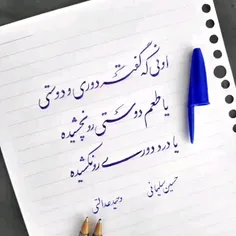 اونی که گفته دوری و دوستی
یا طعم دوستی رو نچشیده
یا درد دوری رو نکشیده
حسین سلیمانی
وحید عدالتی